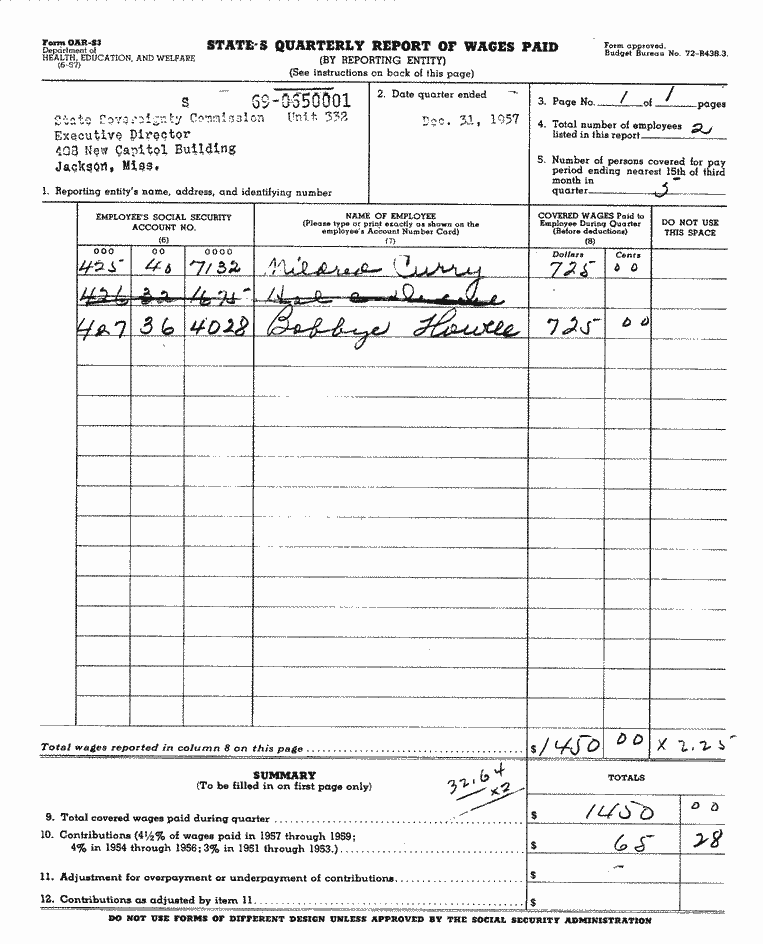 Form OAR-S3
Department of
HEALTH, EDUCATION, AND WELFARE
(6-57)
STATE'S QUARTERLY REPORT OF WAGES PAID
(BY REPORTING ENTITY)
(See instructions on back of this page)
Form approved.
Budget Bureau No. 72-R438.3.
S 69-0650001
State Sovereignty Commission Unit 332
Executive Director
408 New Capitol Building
Jackson, Miss.
1. Reporting entity's name, address, and identifying number
2. Date quarter ended
Dec. 31, 1957
3. Page No. 1 of 1 pages
4. Total number of employees
listed in this report 2
5. Number of persons covered for pay
period ending nearest 15th of third
month in
quarter 5
EMPLOYEE'S SOCIAL SECURITY
ACCOUNT NO.
(6)
NAME OF EMPLOYEE
(Please type or print exactly as shown on the
employee's Account Number Card)
(7)
COVERED WAGES Paid to
Employee During Quarter
(Before deductions)
(8)
DO NOT USE
THIS SPACE
000 00 0000 Dollars Cents
425 40 7132 Mildred Curry 725 00
426 32
427 36 4028 Bobbye Howell 725 00
Total wages reported in column 8 on this page $1450 00 x 2.25
SUMMARY
(To be filled in on first page only)
32.64
x2
TOTALS
9. Total covered wages paid during quarter $ 1450 00
10. Contributions (4½% of wages paid in 1957 through 1959;
4% in 1954 through 1956; 3% in 1951 through 1953.) $ 65 28
11. Adjustment for overpayment or underpayment of contributions $ -
12. Contributions as adjusted by item 11 $
DO NOT USE FORMS OF DIFFERENT DESIGN UNLESS APPROVED BY THE SOCIAL SECURITY ADMINISTRATION